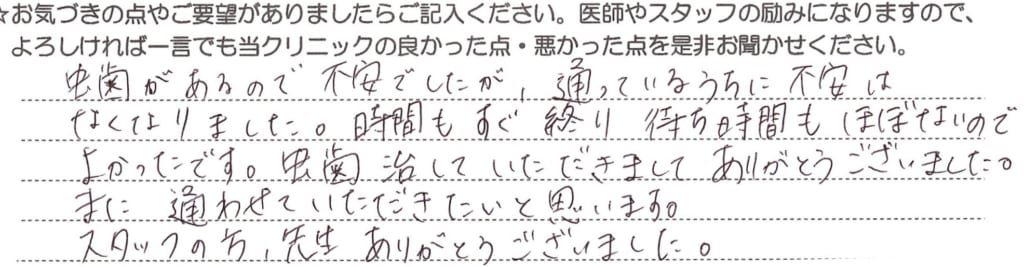 ☆お気づきの点やご要望がありましたらご記入ください。医師やスタッフの励みになりますので、
よろしければ一言でも当クリニックの良かった点・悪かった点を是非お聞かせください。
虫歯があるので不安でしたが、通っているうちに不安は
なくなりました。時間もすぐ終り待ち時間もほぼないので
よかったです。虫歯治していただきましてありがとうございました。
また通わせていただきたいと思います。
スタッフの方、先生ありがとうございました。